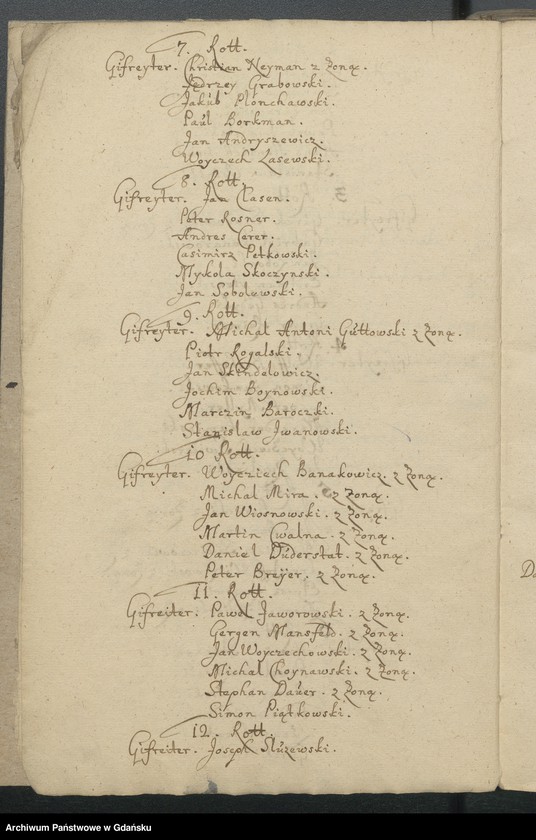 7. Rott.
Gifreyter. Christian Neyman z Zoną.
Jędrzey Grabowski.
Jakub Plonchawski.
Paúl Borkman.
Jan Andryszewicz.
Woyczech Lasewski.
8. Rott.
Gifreyter. Jan Clasen.
Peter Rosner.
Andres Cerer.
Casimirz Petkowski.
Mykola Skoczynski.
Jan Sobolewski.
9. Rott.
Gifreyter. Michal Antoni Gúttowski z Zoną.
Piotr Rogalski.
Jan Skindelowicz.
Jochim Boynowski.
Marczin Baroczki.
Stanislaw Jwanowski.
10 Rott.
Gifreyter. Woyciech Banakowicz. z Zoną.
Michal Mira. z Zoną.
Jan Wiosnowski. z Zoną.
Martin Cwalna. z Zoną.
Daniel Dúderstat. z Zoną.
Peter Breÿer. z Zoną.
11. Rott.
Gifreiter. Pawel Jaworowski. z Zoną.
Gergen Mansfeld. z Zoną.
Jan Woyczechowski. z Zoną.
Michal Choynawski. z Zoną.
Stephan Daúer. z Zoną.
Simon Piątkowski.
12. Rott.
Gifreiter. Joseph Slúzewski.
Archiwum Państwowe w Gdańsku